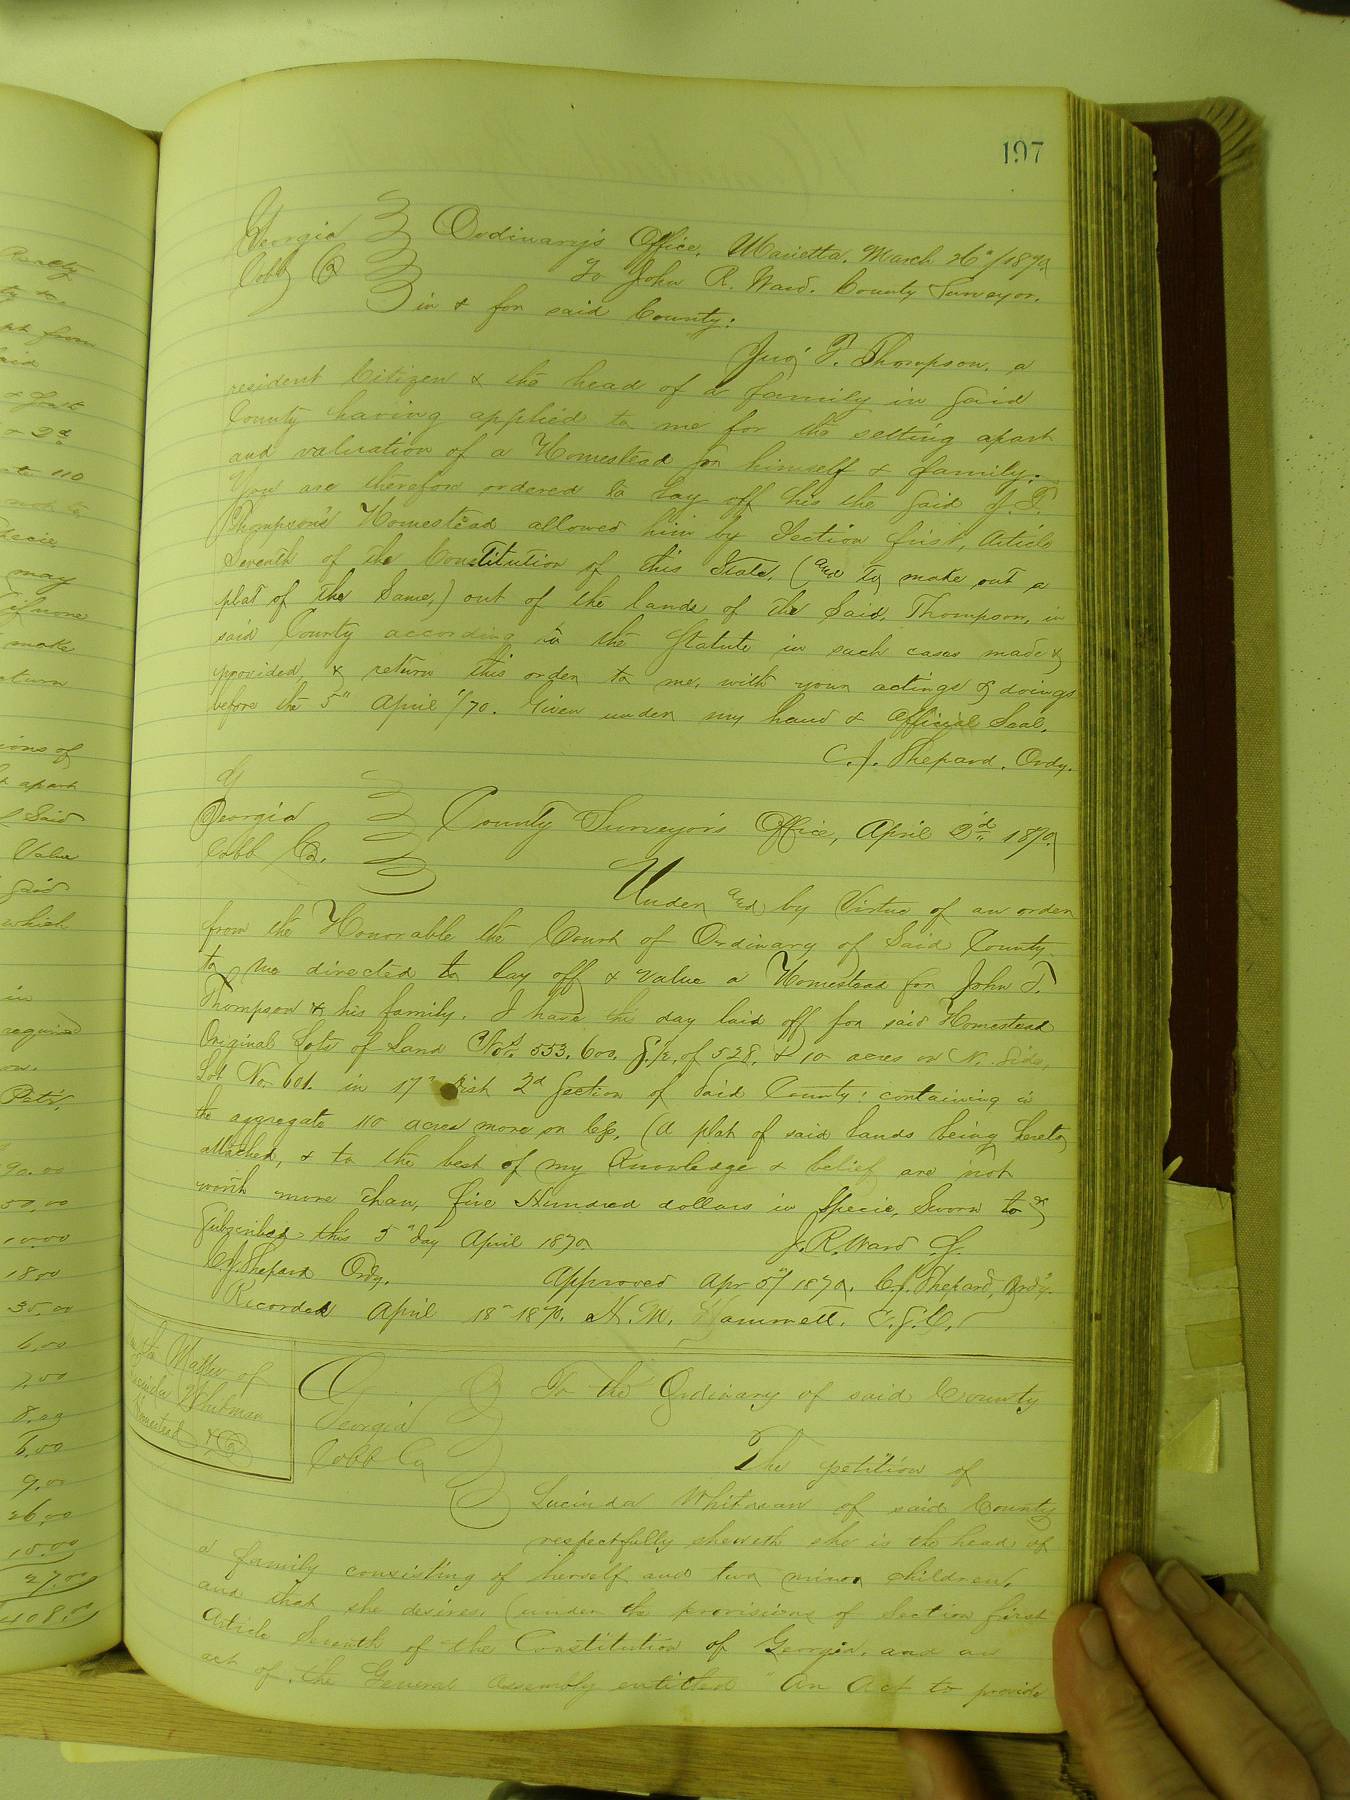 197
Georgia } Ordinary's Office, Marietta, March 26"/1870
Cobb Co } To John R. Ward, County Surveyor,
in & for said County:
Jno T. Thompson, a
resident Citizen & the head of a family in said
County having applied to me for the setting apart
and valuation of a Homestead for himself & family:
You are therefore ordered to lay off his the said J. T.
Thompson's Homestead allowed him by Section first, Article
Seventh of the Constitution of this State, (and to make out a
plat of the Same,) out of the lands of the Said, Thompson, in
said County according to the Statute in such cases made &
provided, & return this order to me, with your actings & doings
before the 5" April 1/70. Given under my hand & Official Seal,
C. J. Shepard, Ordy.
Georgia } County Surveyor's Office, April 2d 1870
Cobb Co. }
Under and by Virtue of an order
from the Honorable the Court of Ordinary of Said County
to me directed to lay off & value a Homestead for John T.
Thompson & his family. I have this day laid off for said Homestead
Original Lots of Land Nos. 553. 600. S./2. of 528. & 10 acres on N. Side,
Lot No. 601. in 17" Dist 2d Section of Said County: containing in
the aggregate 110 acres more or less, (a plat of said lands being hereto
attached, & to the best of my Knowledge & belief are not
worth more than, five Hundred dollars in Specie, Sworn to &
Subscribed this 5" day April 1870. J. R. Ward C.S.
C. J. Shepard Ordy. Approved Apr 5"/1870, C. J. Shepard, Ordy.
Recorded April 18" 1870. H. M. Hammett. C.S.C.
In the Matter of
Lucinda Whitman
Homestead &C
Georgia } To the Ordinary of said County
Cobb Co }
The petition of
Lucinda Whitman of said County
respectfully sheweth she is the head of
a family consisting of herself and two minor children,
and that she desires, (under the provisions of Section first
Article Seventh of the Constitution of Georgia, and an
act of the General Assembly entitled "An Act to provide